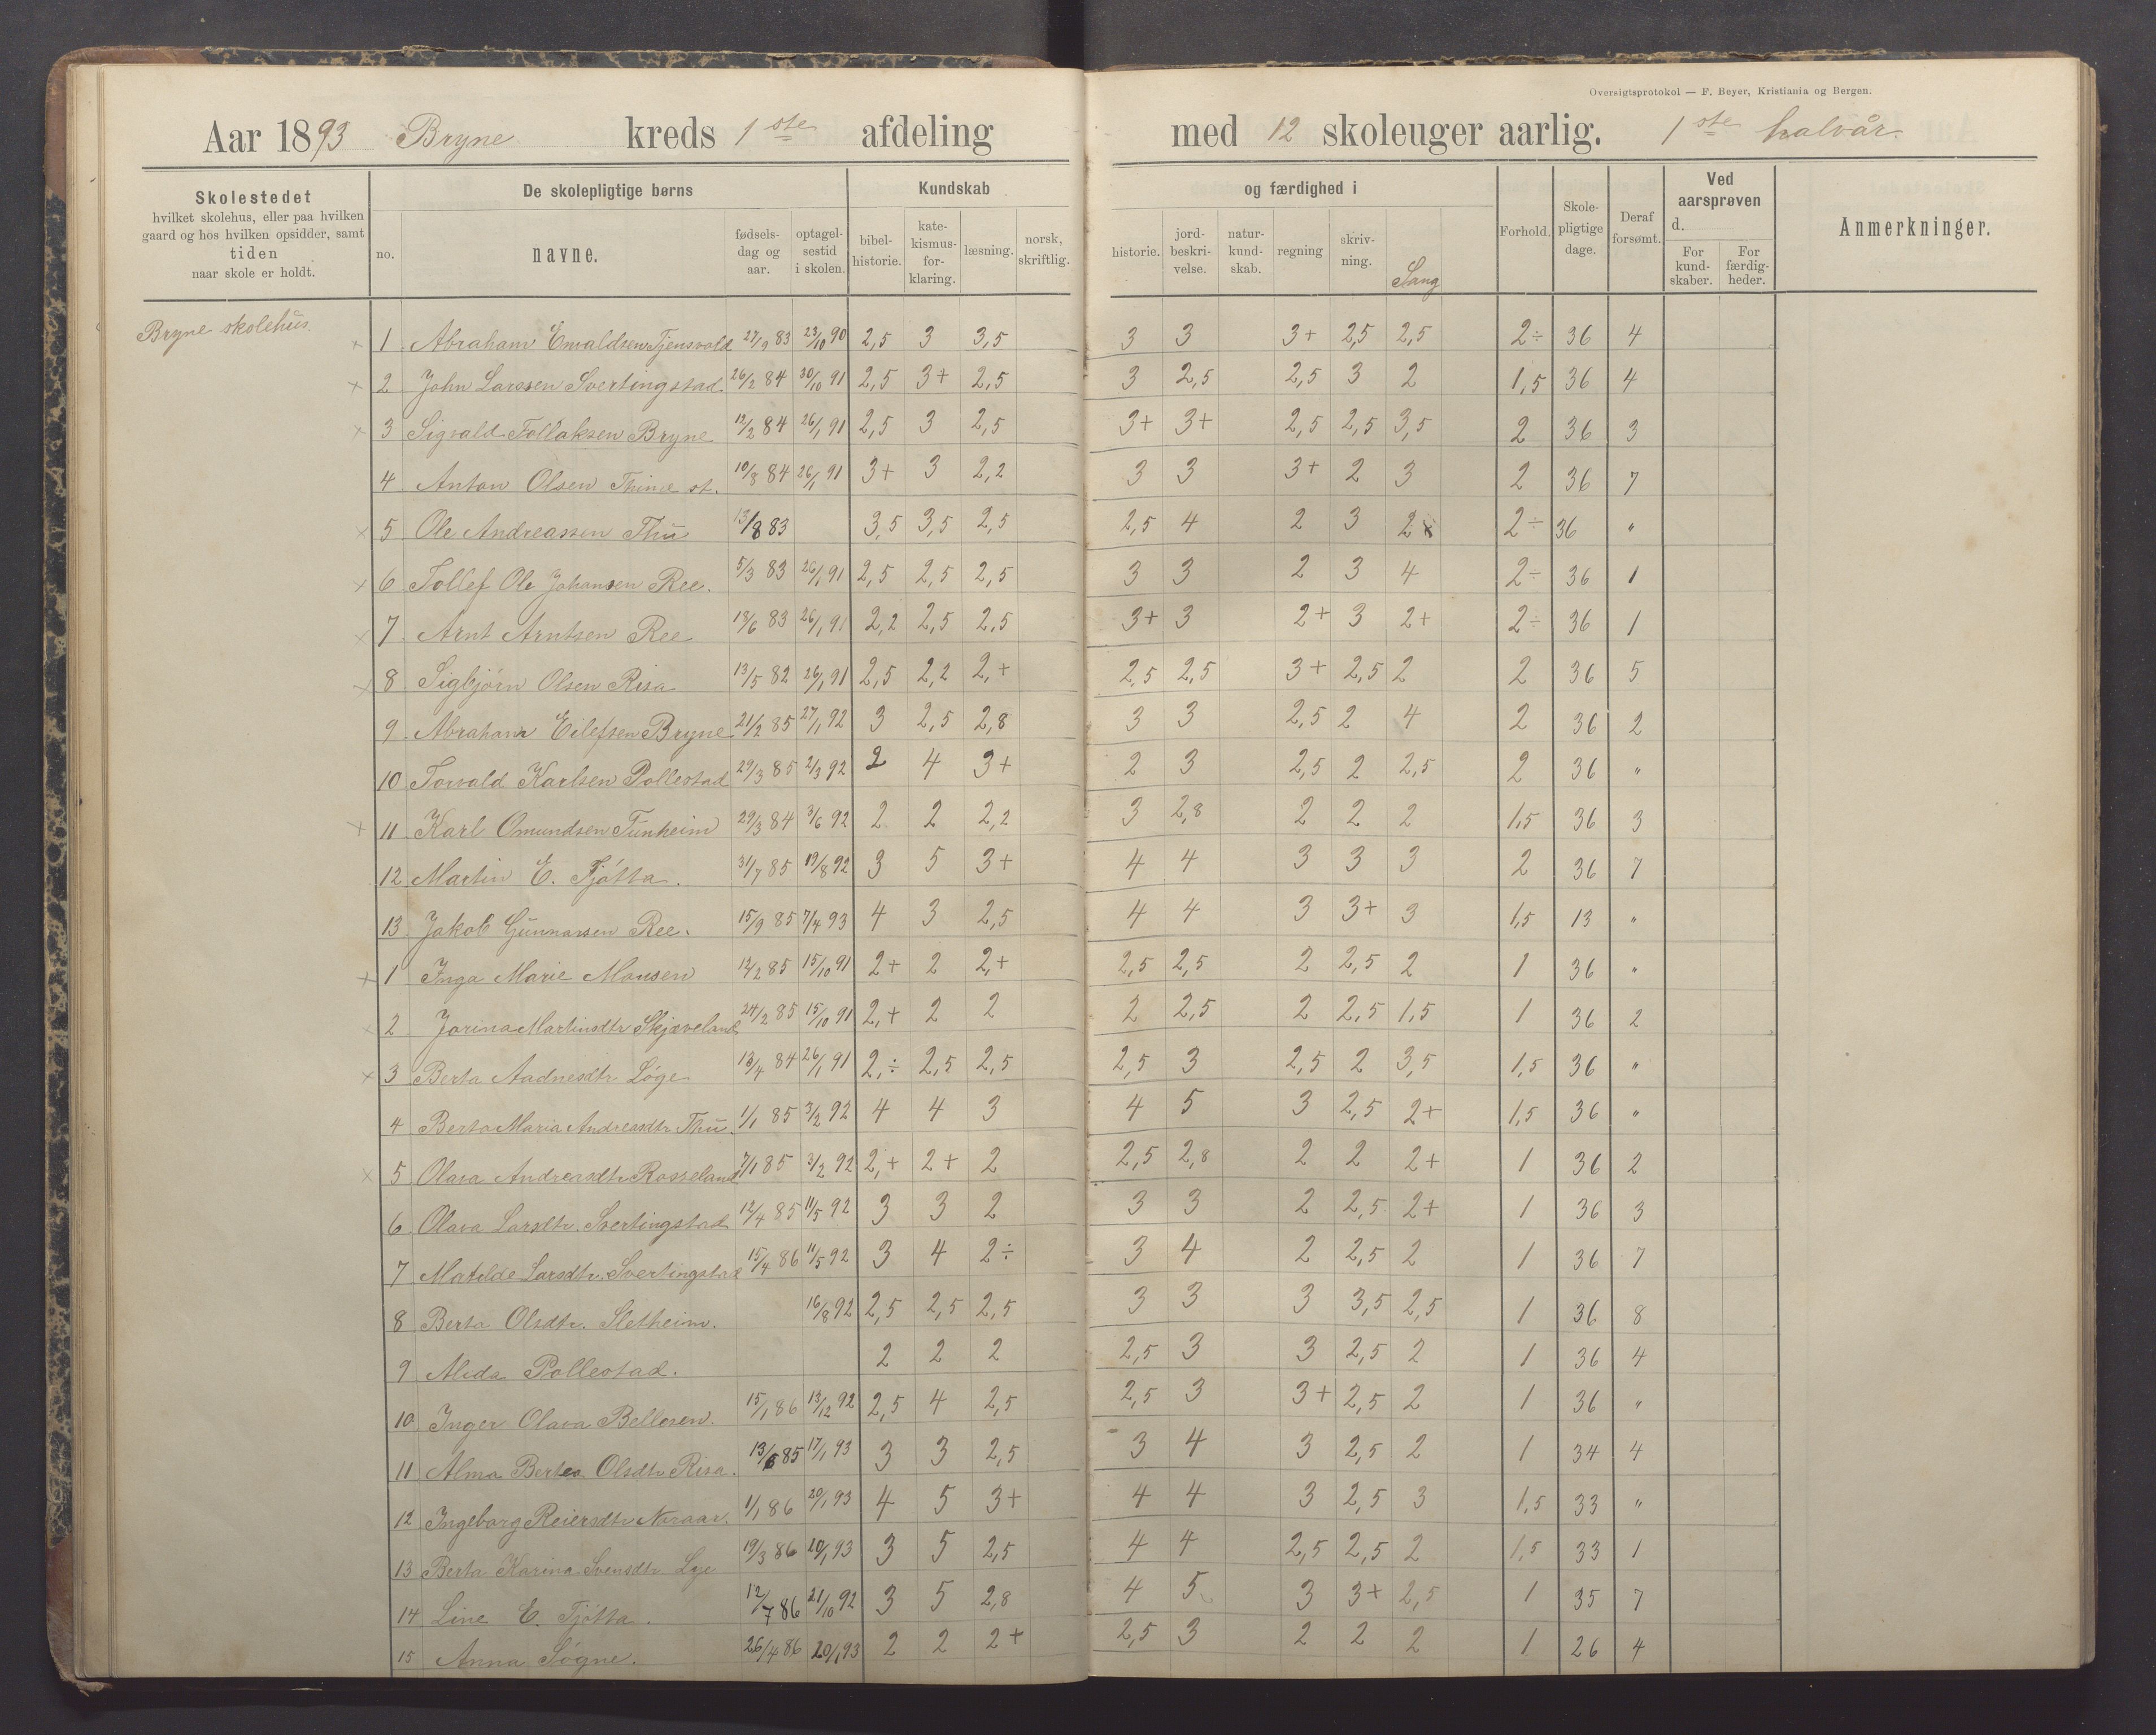 Oversigtsprotokol — F. Beyer, Kristiania og Bergen.
Aar 1893 Bryne kreds 1ste afdeling med 12 skoleuger aarlig. 1ste halvår.
Skolestedet hvilket skolehus, eller paa hvilken gaard og hos hvilken opsidder, samt tiden naar skole er holdt.
De skolepligtige børns
no. navne. fødsels-dag og aar. optagel-sestid i skolen.
Kundskab og færdighed i
bibel-historie. kate-kismus-for-klaring. læsning. norsk, skriftlig. historie. jord-beskri-velse. natur-kund-skab. regning skriv-ning. Sang
Forhold. Skole-pligtige dage. Deraf forsømt.
Ved aarsprøven d. For kund-skaber. For færdig-heder.
Anmerkninger.
Bryne skolehus.
× 1 Abraham Envaldsen Tjensvold 27/9 83 23/10 90 2,5 3 3,5 3 3 3+ 2,5 2,5 2÷ 36 4
× 2 John Larssen Svertingstad 26/2 84 30/10 91 2,5 3+ 2,5 3 2,5 2,5 3 2 1,5 36 4
× 3 Sigvald Tollaksen Bryne 12/2 84 26/1 91 2,5 3 2,5 3+ 3+ 2,5 2,5 3,5 2 36 3
4 Anton Olsen Thime st. 10/8 84 26/1 91 3+ 3 2,2 3 3 3+ 2 3 2 36 7
× 5 Ole Andreassen Thu 13/8 83 3,5 3,5 2,5 2,5 4 2 3 2 2÷ 36 "
× 6 Tollef Ole Johansen Ree. 5/3 83 26/1 91 2,5 2,5 2,5 3 3 2 3 4 2÷ 36 1
× 7 Arnt Arntsen Ree 18/6 83 26/1 91 2,2 2,5 2,5 3+ 3 2+ 3 2+ 2÷ 36 1
× 8 Sigbjørn Olsen Risa 13/5 82 26/1 91 2,5 2,2 2,+ 2,5 2,5 3+ 2,5 2 2 36 5
9 Abraham Eilefsen Bryne 21/2 85 27/1 92 3 2,5 2,8 3 3 2,5 2 4 2 36 2
10 Torvald Karlsen Pollestad 29/3 85 2/3 92 2 4 3+ 2 3 2,5 2 2,5 2 36 "
× 11 Karl Omundsen Tunheim 29/3 84 3/6 92 2 2 2,2 3 2,8 2 2 2 1,5 36 3
12 Martin E. Tjøtta. 31/7 85 19/8 92 3 5 3+ 4 4 3 3 3 2 36 7
13 Jakob Gunnarsen Ree. 15/9 85 7/4 93 4 3 2,5 4 4 3 3+ 3 1,5 13 "
× 1 Inga Marie Monsen 12/2 85 15/10 91 2+ 2 2,+ 2,5 2,5 2 2,5 2 1 36 "
× 2 Jorina Martinsdtr Skjæveland 24/2 85 15/10 91 2,+ 2 2 2 2,5 2 2,5 1,5 1 36 2
× 3 Berta Aadnesdtr Løge 13/4 84 26/1 91 2,÷ 2,5 2,5 2,5 3 2,5 2 3,5 1,5 36 "
4 Berta Maria Andreasdtr Thu. 1/1 85 3/2 92 4 4 3 4 5 3 2,5 2+ 1,5 36 "
× 5 Olava Andreasdtr Rosseland 7/1 85 3/2 92 2,+ 2+ 2 2,5 2,8 2 2 2+ 1 36 2
6 Olava Larsdtr. Svertingstad 12/4 85 11/5 92 3 3 2 3 3 2 2,5 2+ 1 36 3
7 Matilde Larsdtr. Svertingstad 15/4 86 11/5 92 3 4 2÷ 3 4 2 2,5 2 1 36 7
8 Berta Olsdtr. Sletheim. 16/8 92 2,5 2,5 2,5 3 3 3 3,5 2,5 1 36 8
9 Alida Pollestad. 2 2 2 2,5 3 3 2,5 2 1 36 4
10 Inger Olava Bellesen. 15/1 86 13/12 92 2,5 4 2,5 2,5 3 3+ 2,5 2 1 36 "
11 Alma Bertea Olsdtr Risa. 13/6 85 17/1 93 3 3 2,5 3 4 3 2,5 2 1 34 4
12 Ingeborg Reiersdtr 1/1 86 20/1 93 4 5 3+ 4 4 3 2,5 3 1,5 33 "
13 Berta Karina Svensdtr Lge 19/3 86 20/1 93 3 5 2,5 4 4 2,5 2,5 2 1,5 33 1
14 Line E. Tjøtta. 12/7 86 21/10 92 3 5 2,8 4 5 3 3+ 2,5 1 35 7
15 Anna Søgne. 26/4 86 20/1 93 2 2 2+ 2,5 3 2 2 2 1 26 4